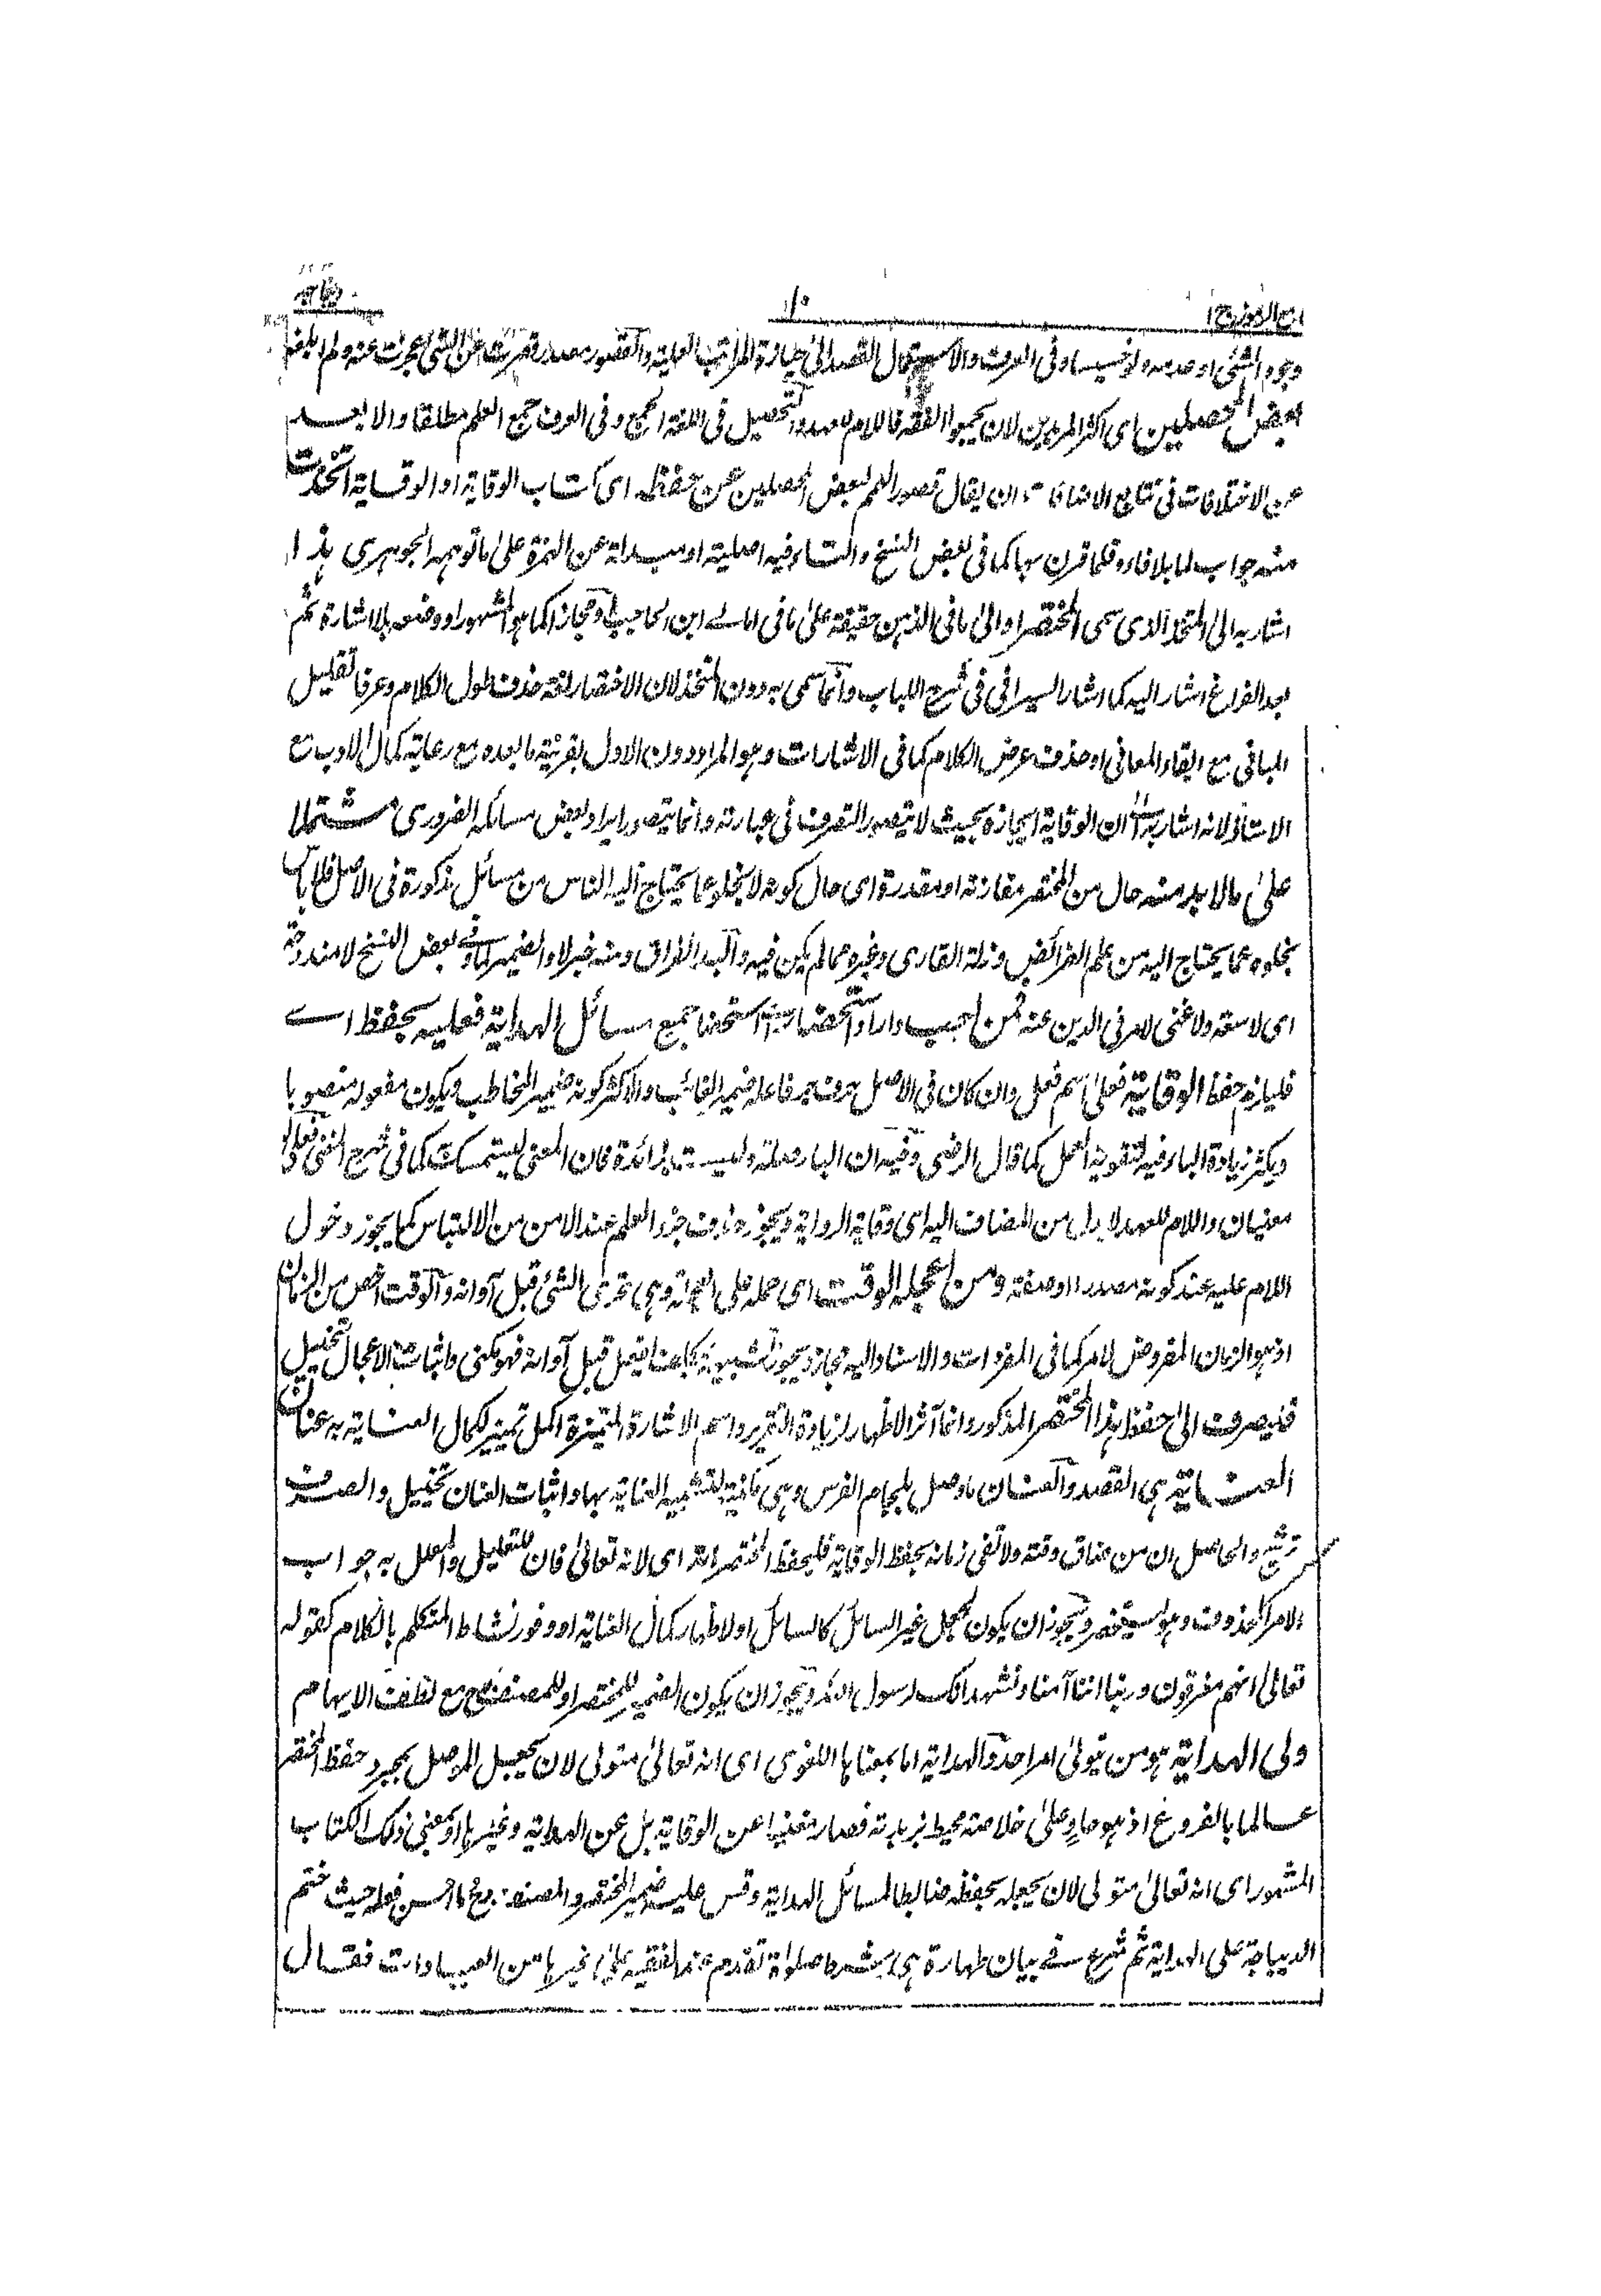 جامع الرموز ج ۱ ۱۰ دیباجه
وجود الشئ او عدمه ولو خسيسا وفى العرف والاستعمال القصد الى حيازة المراتب العلية والقصور مصدر قصرت عن الشئ عجزت عنه ولم ابلغه
بعض المحصلين اى اكثر المريدين لان يجمعوا الفقه فاللام للعهد والتحصيل فى اللغة الجمع وفى العرف جمع العلم مطلقا والا بعد
عن الاختلافات فى تتابع الاضافات ان يقال قصور الهمم لبعض المحصلين عن حفظه اى كتاب الوقاية او الوقاية اتخذت
منه جواب لما بلا فاء وقلما قرن بها كما فى بعض النسخ والتاء فيه اصلية او مبدلة عن الهمزة على ما توهمه الجوهرى هذا
اشار به الى المتخذ الذى سمى المختصر او الى ما فى الذهن حقيقة على ما فى امالى ابن الحاجب او مجازا كما هو المشهور او وضعه بلا اشارة ثم
بعد الفراغ اشار اليه كما اشار السيرافى فى شرح اللباب وانما سمى به دون المتخذ لان الاختصار لغة حذف طول الكلام وعرفا تقليل
المبانى مع ابقاء المعانى او حذف عرض الكلام كما فى الاشارات وهو المراد دون الاول بقرينة ما بعده مع رعاية كمال الادب مع
الاستاذ لانه اشار به الى ان الوقاية ايجازه بحيث لا يتصور التصرف فى عبارته وانما يتصور ايراد بعض مسائله الضرورى مشتملا
على ما لا بد منه حال من المختصر مقارنة او مقدرة اى حال كونه لا يخلو عما يحتاج اليه الناس من مسائل مذكورة فى الاصل فلا باس
بخلوه عما يحتاج اليه من علم الفرائض وزلة القارى وغيره مما لم يكن فيه والبد الفراق ومنه خبر لا والضمير لما وفى بعض النسخ لا مندوحة
اى لا سعة ولا غنى لامر فى الدين عنه فمن احب واراد استحضار جميع مسائل الهداية فعليه بحفظ اى
فليلزم حفظ الوقاية فعلى اسم فعل وان كان فى الاصل حرف جر فاعله ضمير الغائب والاكثر كونه ضمير المخاطب ويكون مفعوله منصوبا
ويكثر زيادة الباء فيه لتقوية العمل كما قال الرضى وفيه ان الباء صلة وليست بزائدة فان المعنى ليستمسك كما فى شرح المغنى فعلى
معنيان واللام للعهد لا بدل من المضاف اليه اى وقاية الرواية ويجوز حذف جزء العلم عند الامن من الالتباس كما يجوز دخول
اللام عليه عند كونه مصدرا او صفة ومن اعجله الوقت اى حمله على العجلة وهى تحرى الشئ قبل آوانه والوقت اخص من الزمان
اذ هو الزمان المفروض لامر كما فى المفردات والاسناد اليه مجاز ويجوز تشبيهه قبل آوانه فهو مكنى واثبات الاعجال تخييل
فليصرف الى حفظ هذا المختصر المذكور وانما آثر الاظهار لزيادة التقرير واسم الاشارة المتميزة اكمل تمييز لكمال العناية به عنان
العناية هى القصد والعنان ما وصل بلجام الفرس وهى مكنية لتشبيه العناية بها واثبات العنان تخييل والصرف
ترشيح والحاصل ان من ضاق وقته ولا تفى زمانه بحفظ الوقاية فليحفظ المختصر انه اى لانه تعالى فان للتعليل والمعلل به جواب
الامر المحذوف وهو ليستحضر ويجوز ان يكون لجعل غير السائل كالسائل او لاظهار كمال العناية او وفور نشاط المتكلم بالكلام كقوله
تعالى انهم مغرقون وربنا اننا آمنا ونشهد انك لرسول الله ويجوز ان يكون الضمير للمختصر او للمصنف رح مع لطف الايهام
ولى الهداية هو من تولى امر احد والهداية اما بمعناها اللغوى اى انه تعالى متولى لان يجعل المرء بمجرد حفظ المختصر
عالما بالفروع اذ هو حاو على خلاصة محيط فصار مغنيا عن الوقاية بل عن الهداية وغيرها او بمعنى ذلك الكتاب
المشهور اى انه تعالى متولى لان يجعله بحفظه ضابطا لمسائل الهداية وقس عليه ضمير المختصر والمصنف رح ما احسن فعله حيث ختم
الديباجة على الهداية ثم شرع فى بيان طهارة هى شرط صلوة تقدم عند الفقيه على غيرها من العبادات فقال